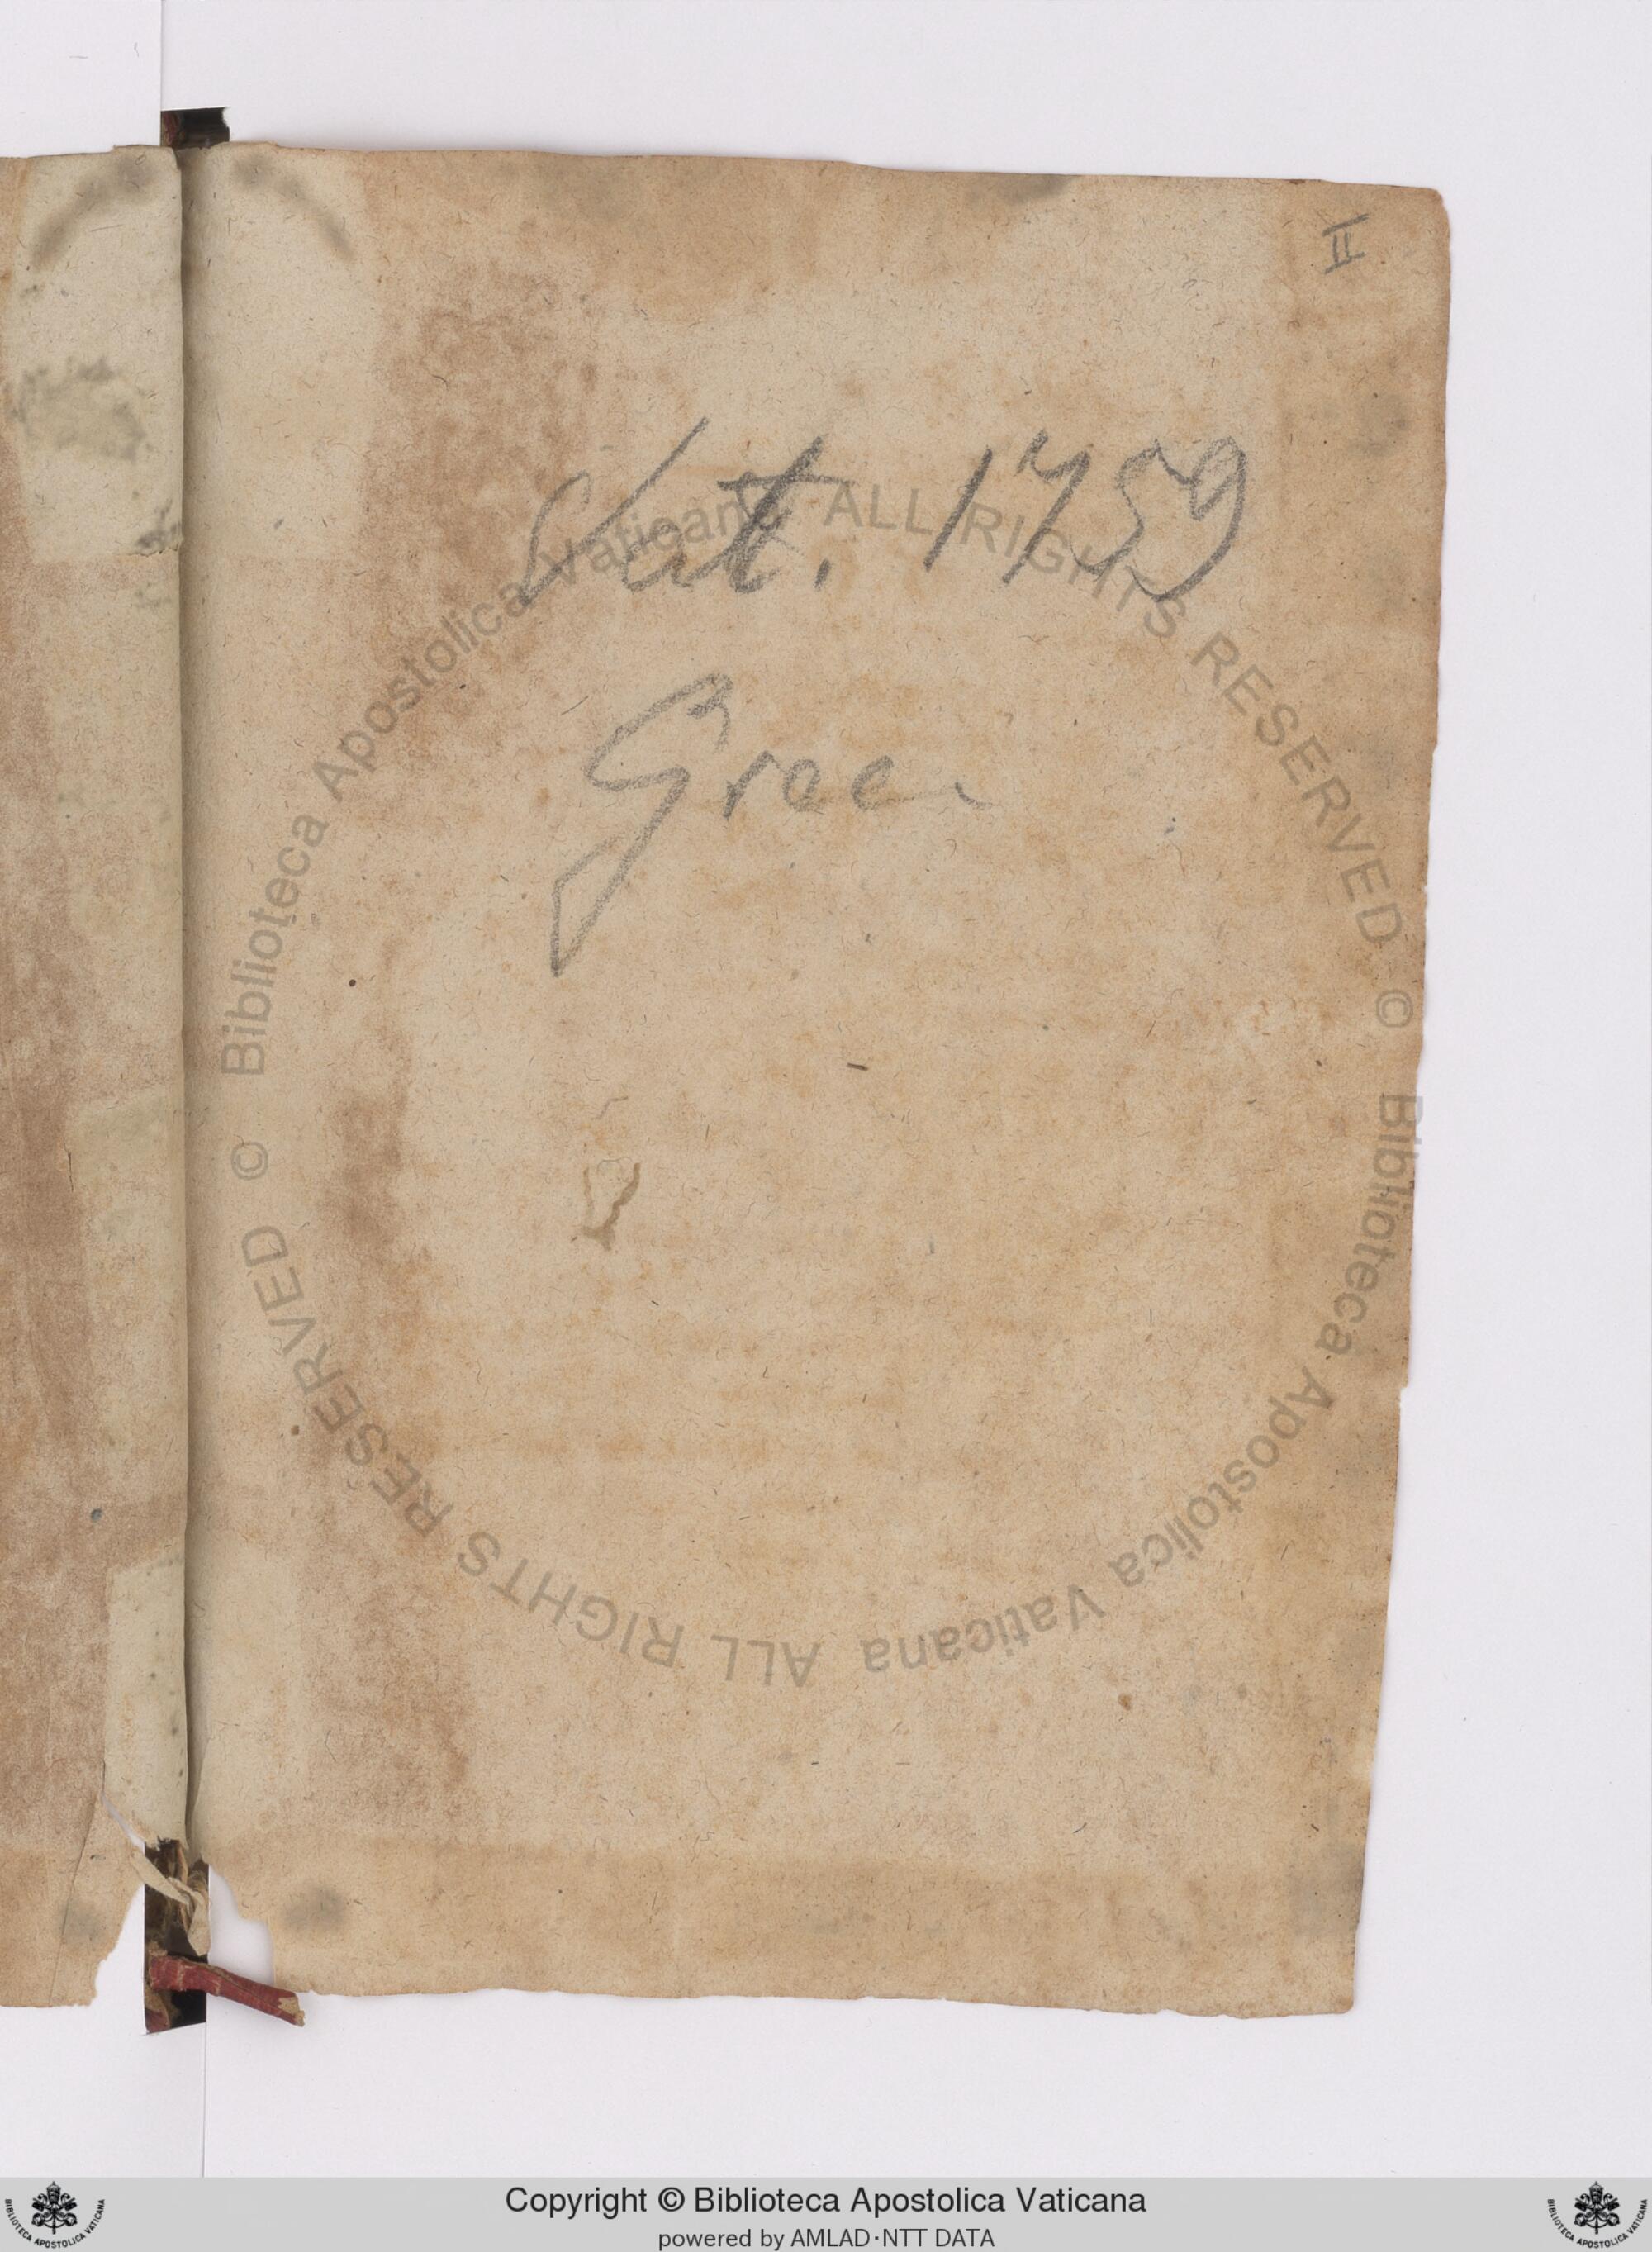 II
Vat. 1759
Graec.
© Biblioteca Apostolica Vaticana ALL RIGHTS RESERVED © Biblioteca Apostolica Vaticana ALL RIGHTS RESERVED
Copyright © Biblioteca Apostolica Vaticana
powered by AMLAD·NTT DATA
BIBLIOTECA APOSTOLICA VATICANA
BIBLIOTECA APOSTOLICA VATICANA